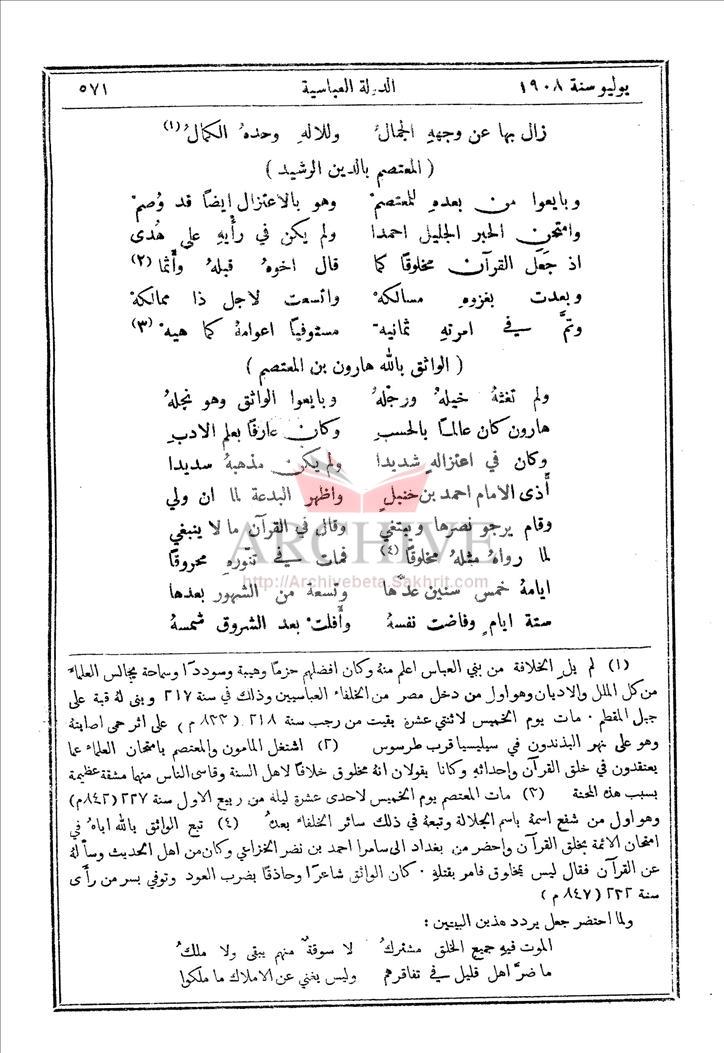 يوليو سنة ١٩٠٨ الدولة العباسية ٥٧١
زال بها عن وجههِ الجمالُ وللالهِ وحدهُ الكمالُ (١)
( المعتصم بالدين الرشيد )
وبايعوا من بعدهِ للمعتصمْ وهو بالاعتزال ايضًا قد وُصِمْ
وامتحن الحبر الجليل احمدا ولم يكن في رأْيهِ على هُدى
اذ جَعَل القرآن مخلوقًا كما قال اخوهُ قبلهُ وأَثما (٢)
وبعدت بغزوهِ مسالكهْ واتسعت لاجل ذا ممالكهْ
وتمَّ في امرتهِ ثمانيهْ مستوفيًا اعوامهُ كما هيهْ (٣)
( الواثق بالله هارون بن المعتصم )
ولم تغثهُ خيلهُ ورجْلهُ وبايعوا الواثق وهو نجلهُ
هارون كان عالمًا بالحسبِ وكان عارفًا بعلم الادبِ
وكان في اعتزالهِ شديدا ولم يكن مذهبهُ سديدا
أَذى الامام احمد بن حنبلِ واظهر البدعة لما ان ولي
وقام يرجو نصرها ويبتغي وقال في القرآن ما لا ينبغي
لما رواهُ مثلهُ مخلوقًا (٤) فمات في تنّورهِ محروقًا
ARCHIVE
http://Archivebeta.Sakhrit.com
ايامهُ خمس سنين عدّها وتسعة من الشهور بعدها
ستة ايامٍ وفاضت نفسهُ وأَفلتْ بعد الشروق شمسهُ
(١) لم يلِ الخلافة من بني العباس اعلم منهُ وكان افضلهم حزمًا وهيبة وسوددًا وسماحة مجالس العلماء
من كل الملل والاديان وهو اول من دخل مصر من الخلفاء العباسيين وذلك في سنة ٢١٧ وبنى لهُ قبة على
جبل المقطم . مات يوم الخميس لاثنتي عشرة بقيت من رجب سنة ٢١٨ (٨٣٣ م) على اثر حمى اصابتهُ
وهو على نهر البذندون في سيليسيا قرب طرسوس (٢) اشتغل المامون والمعتصم بامتحان العلماء عما
يعتقدون في خلق القرآن واحداثهِ وكانا يقولان انهُ مخلوق خلافًا لاهل السنة وقاسى الناس منهما مشقة عظيمة
بسبب هذه المحنة (٣) مات المعتصم يوم الخميس لاحدى عشرة ليلة من ربيع الاول سنة ٢٢٧ (٨٤٢م)
وهو اول من شفع اسمهُ باسم الجلالة وتبعهُ في ذلك سائر الخلفاء بعدهُ (٤) تبع الواثق بالله اباهُ في
امتحان الائمة بخلق القرآن واحضر من بغداد الى سامرا احمد بن نضر الخزاعي وكان من اهل الحديث وسألهُ
عن القرآن فقال ليس بمخلوق فامر بقتلهِ . كان الواثق شاعرًا وحاذقًا بضرب العود وتوفي بسر من رأَى
سنة ٢٣٢ (٨٤٧ م)
ولما احتضر جعل يردد هذين البيتين :
الموت فيهِ جميع الخلق مشتركُ لا سوقةٌ منهم يبقى ولا ملكُ
ما ضرَّ اهل قليل في تفاقرهم وليس يغني عن الاملاك ما ملكوا